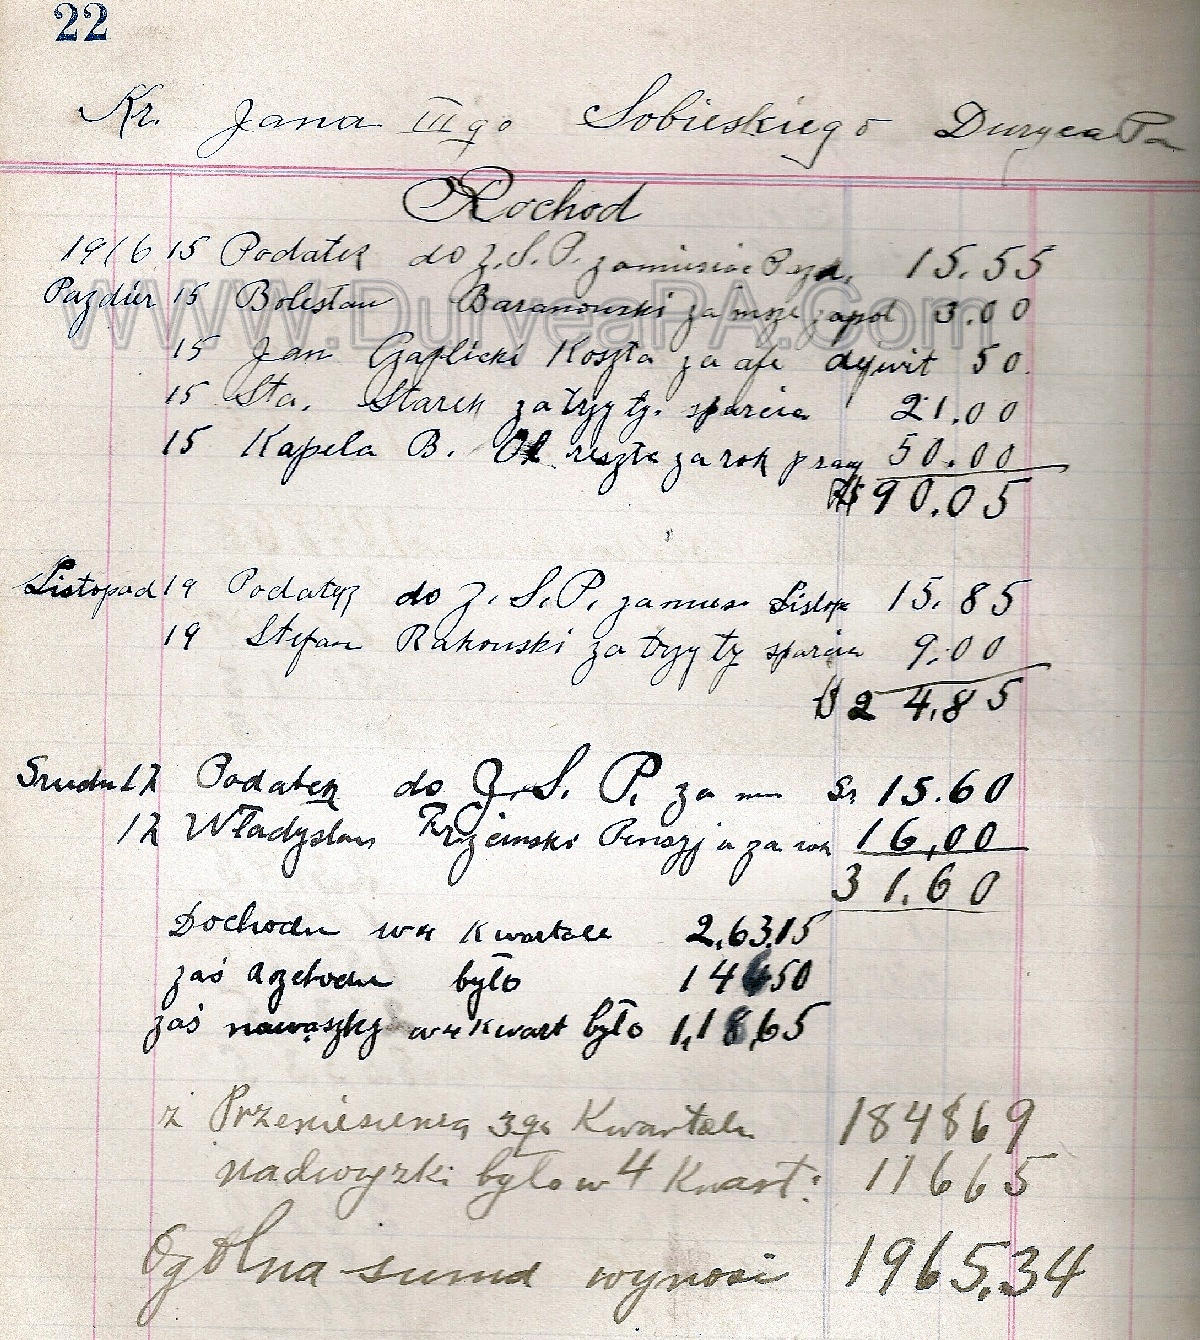 22
Kr. Jana III go Sobieskiego Duryea Pa
Rochod
1916 15 Podatek do Z.S.P. za miesiac Pazd. 15.55
Pazdier 15 Bolesław Baranowski za msze zapol 3.00
15 Jan Czaplicki Koszta za afi dejwit 50
15 Sta. Starek za trzy ty. sparcia 21.00
15 Kapela B. Ol reszta za rok pracy 50.00
$90.05
Listopad 19 Podatek do Z.S.P. za mies. Listop 15.85
19 Stefan Rakowski za trzy ty sparcia 9.00
$24.85
Grudn 17 Podatek do Z.S.P. za m Gr 15.60
17 Władysław Pensyja za rok 16,00
31.60
Dochodu w 4 kwartale 2,63.15
zaś było 14650
zaś nawąszky w 4 kwart było 1,18,65
z Przeniesienią 3go Kwartału 184869
nadwyzki było w 4 Kwart: 11665
Ogolna suma wynosi 1965.34
WWW.DuryeaPA.Com